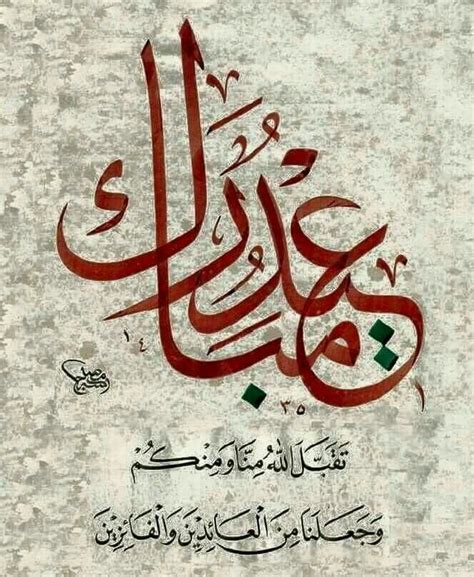 عيد مبارك
١٤٣٥
تَقَبَّلَ اللهُ مِنَّا وَمِنْكُمْ
وَجَعَلَنَا مِنَ الْعَائِدِيْنَ وَالْفَائِزِيْنَ